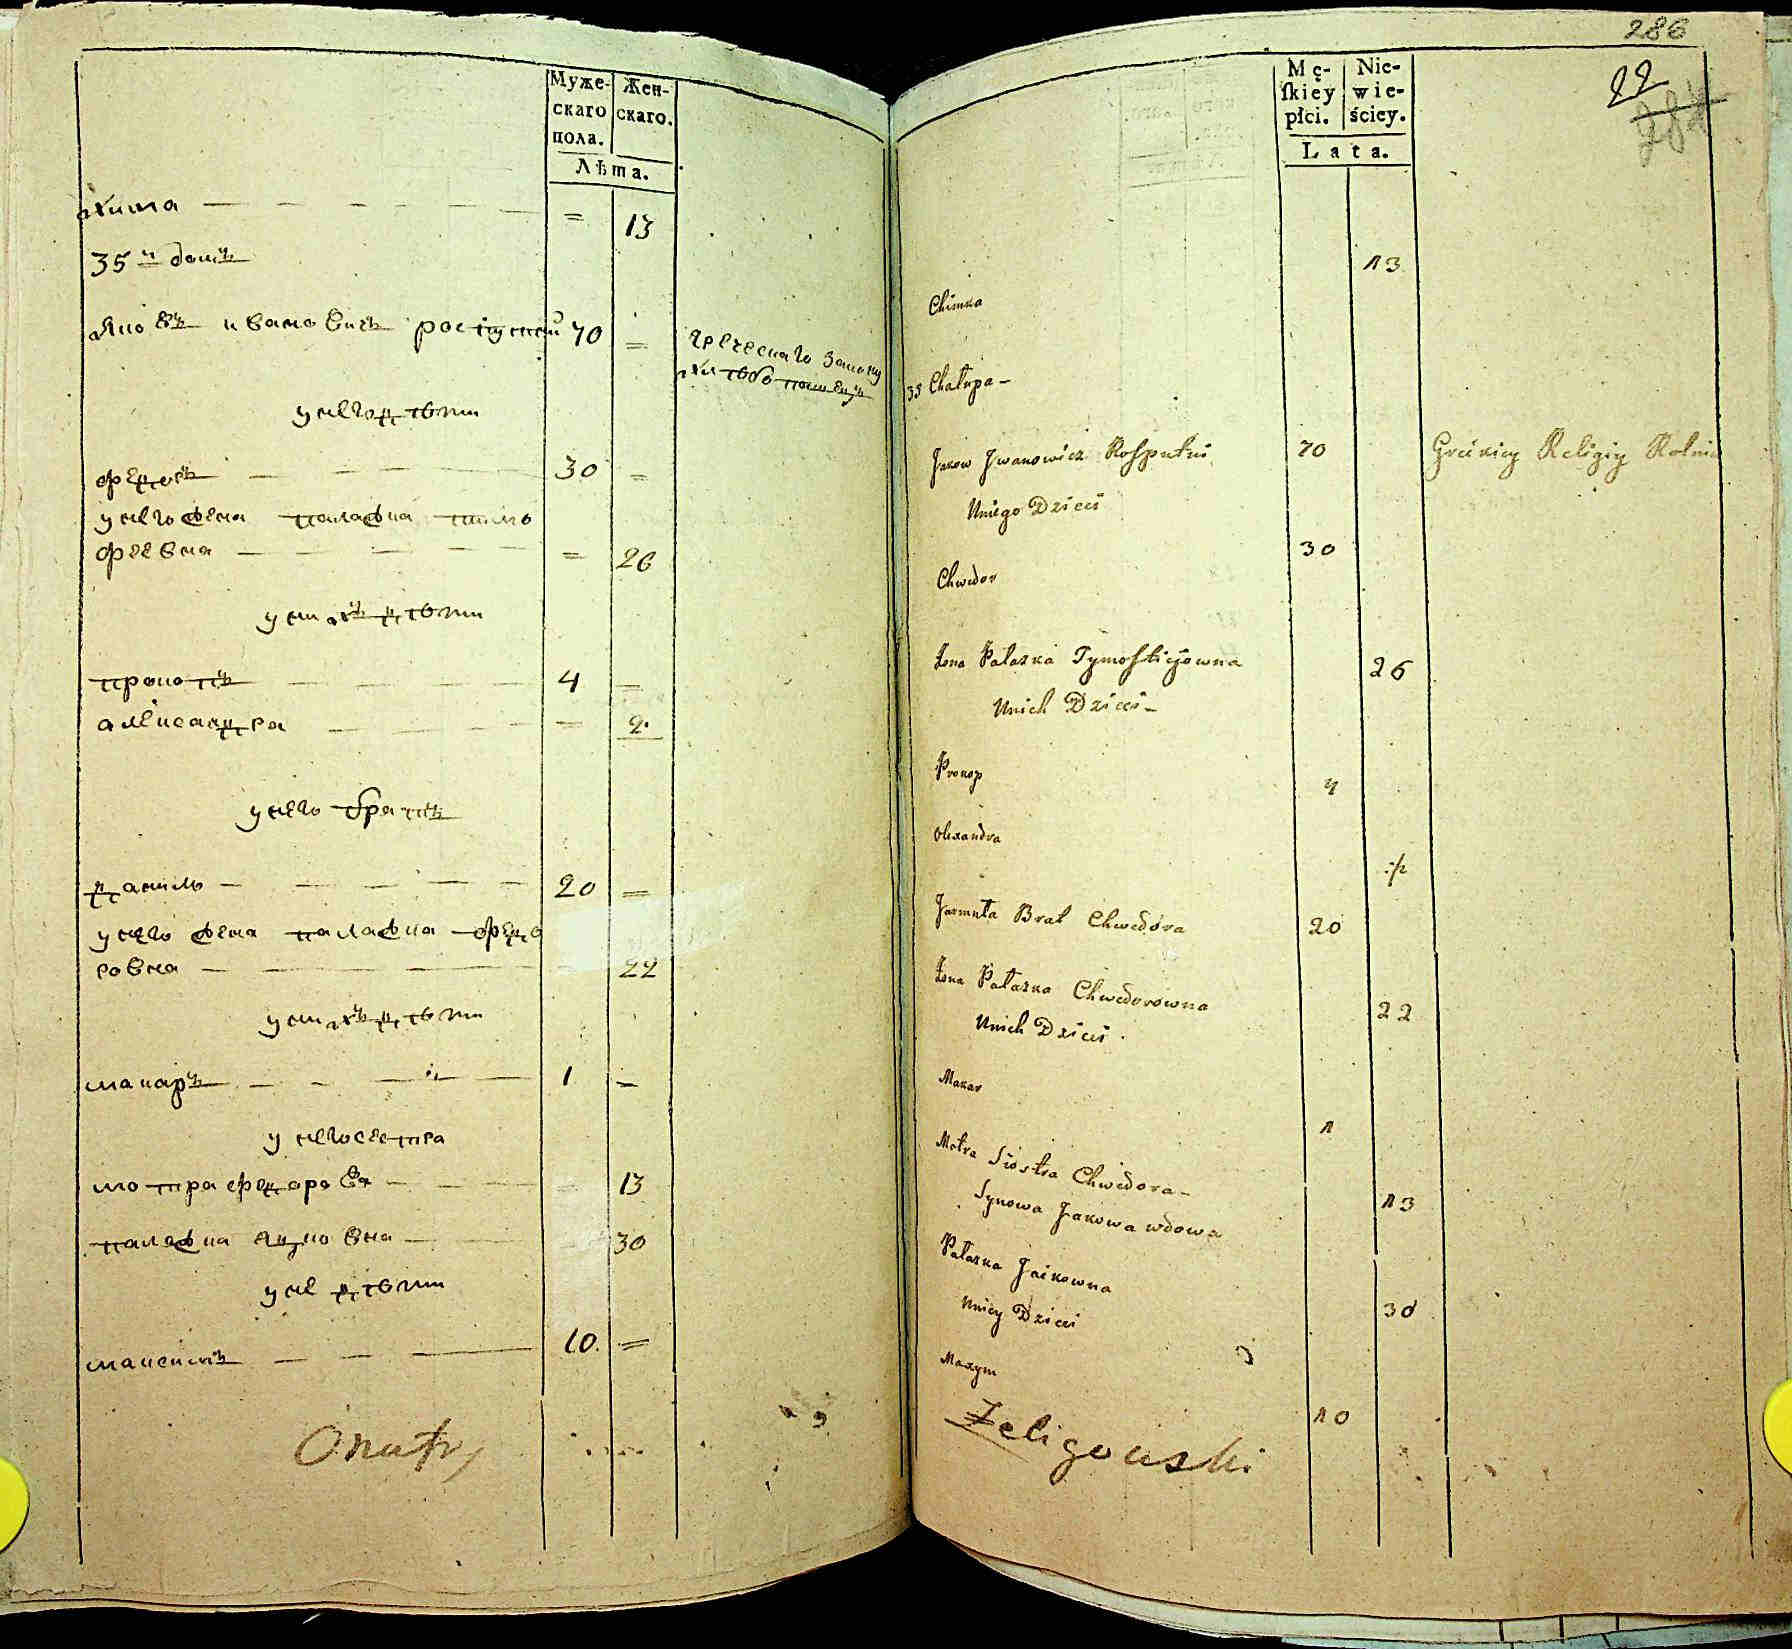 Муже-
скаго
пола.
Жен-
скаго.
Лѣта.
Хима 13
35 й домъ
Яковъ Ивановичъ 70
Греческаго закону
у него дѣти
Федоръ 30
у него жена палажка тимо
феевна 26
у них дѣти
прокопъ 4
александра 2
у него братъ
данило 20
у него жена палажка федо
ровна 22
у них дѣти
макаръ 1
у него сестра
мотра 13
палажка 30
у ней дѣти
максимъ 10
286
22
Mę-
skiey
płci.
Nie-
wie-
ściey.
Lata.
Chimka 13
35 Chałupa
Jakow Jwanowicz Rosputni 70 Greckiey Religiy Rolnik
Uniego Dzieci
Chwedor 30
Żona Pałazka Tymofticjowna 26
Unich Dzieci
Prokop 4
Olexandra
Brat Chwedora 20
Żona Pałazka Chwedorowna 22
Unich Dzieci
Makar 1
Motra Siostra Chwedora 13
Synowa Jakowa wdowa
Pałazka Jackowna 30
Uniey Dzieci
Maxym 10
Żeligowski